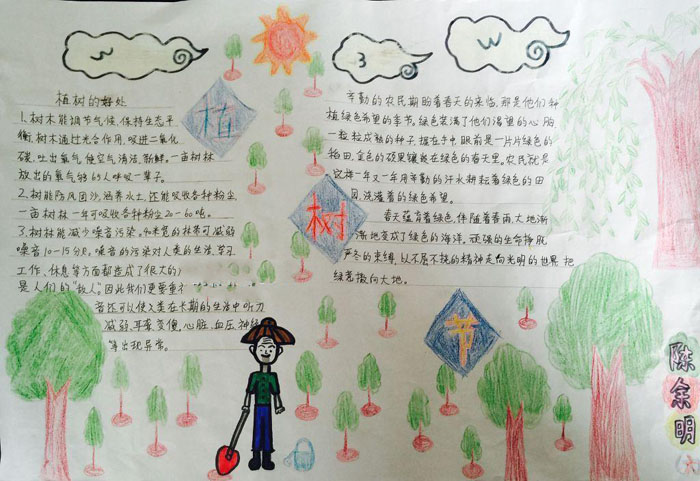 植树的好处
1.树木能调节气候,保持生态平
衡.树木通过光合作用,吸进二氧化
碳,吐出氧气,使空气清洁、新鲜。一亩树林
放出的氧气够的人呼吸一辈子。
2.树能防风固沙,涵养水土,还能吸收各种粉尘
一亩树林一年可吸收各种粉尘20-60吨。
3.树林能减少噪音污染。40米宽的林带可减弱
噪音10-15分贝。噪音的污染对人类的生活、学习
工作、休息等方面都造成了很大的
是人们的“敌人”因此我们更要重
音还可以使人类在长期的生活中听力
减弱、耳聋变傻、心脏、血压、神经
等出现异常。
辛勤的农民期盼着春天的来临,那是他们种
植绿色希望的季节。绿色装满了他们渴望的心脏,
一粒粒成熟的种子,握在手中,眼前是一片片绿色的
稻田,金色的硕果镶嵌在绿色的春天里。农民就是
这样一年又一年用辛勤的汗水耕耘着绿色的田
园,浇灌着的绿色希望。
春天蕴育着绿色,伴随着春雨,大地渐
渐地变成了绿色的海洋,顽强的生命挣脱
严冬的束缚,以不屈不挠的精神走向光明的世界,把
绿意撒向大地。
植
树
节
3
W
陈余明